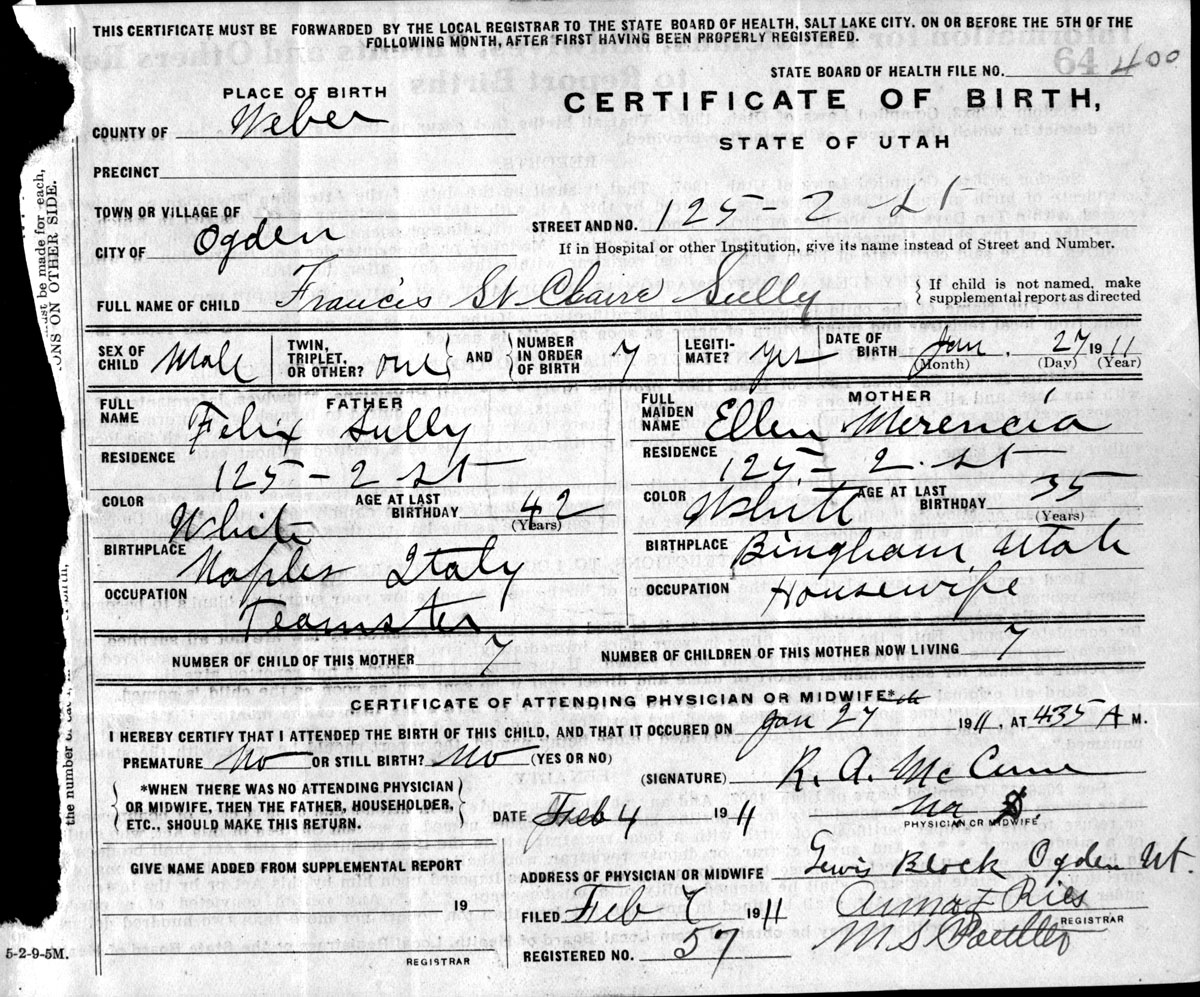 THIS CERTIFICATE MUST BE FORWARDED BY THE LOCAL REGISTRAR TO THE STATE BOARD OF HEALTH, SALT LAKE CITY, ON OR BEFORE THE 5TH OF THE
FOLLOWING MONTH, AFTER FIRST HAVING BEEN PROPERLY REGISTERED.
STATE BOARD OF HEALTH FILE NO. 64 400
PLACE OF BIRTH
CERTIFICATE OF BIRTH,
COUNTY OF Weber
STATE OF UTAH
PRECINCT
TOWN OR VILLAGE OF
STREET AND NO. 125 - 2 St
CITY OF Ogden
If in Hospital or other Institution, give its name instead of Street and Number.
FULL NAME OF CHILD Francis St Claire Sully
If child is not named, make
supplemental report as directed
SEX OF CHILD Male
TWIN, TRIPLET, OR OTHER? one AND NUMBER IN ORDER OF BIRTH 7
LEGITIMATE? yes
DATE OF BIRTH Jan. 27 1911
(Month) (Day) (Year)
FATHER
FULL NAME Felix Sully
RESIDENCE 125 - 2 St
COLOR White AGE AT LAST BIRTHDAY 42
(Years)
BIRTHPLACE Naples Italy
OCCUPATION Teamster
MOTHER
FULL MAIDEN NAME Ellen Merencia
RESIDENCE 125 - 2. St
COLOR White AGE AT LAST BIRTHDAY 35
(Years)
BIRTHPLACE Bingham, Utah
OCCUPATION Housewife
NUMBER OF CHILD OF THIS MOTHER 7 NUMBER OF CHILDREN OF THIS MOTHER NOW LIVING 7
CERTIFICATE OF ATTENDING PHYSICIAN OR MIDWIFE*
I HEREBY CERTIFY THAT I ATTENDED THE BIRTH OF THIS CHILD, AND THAT IT OCCURED ON Jan 27th 1911, AT 435 A M.
PREMATURE No OR STILL BIRTH? No (YES OR NO)
(SIGNATURE) R. A. McCune
*WHEN THERE WAS NO ATTENDING PHYSICIAN
OR MIDWIFE, THEN THE FATHER, HOUSEHOLDER,
ETC., SHOULD MAKE THIS RETURN.
DATE Feb 4 1911
PHYSICIAN OR MIDWIFE
GIVE NAME ADDED FROM SUPPLEMENTAL REPORT
ADDRESS OF PHYSICIAN OR MIDWIFE Lewis Block Ogden Ut.
19
FILED Feb 7 1911 Anna F Ries
REGISTRAR
5-2-9-5M.
REGISTRAR
REGISTERED NO. 57
must be made for each,
ONS ON OTHER SIDE.
the number of each, in